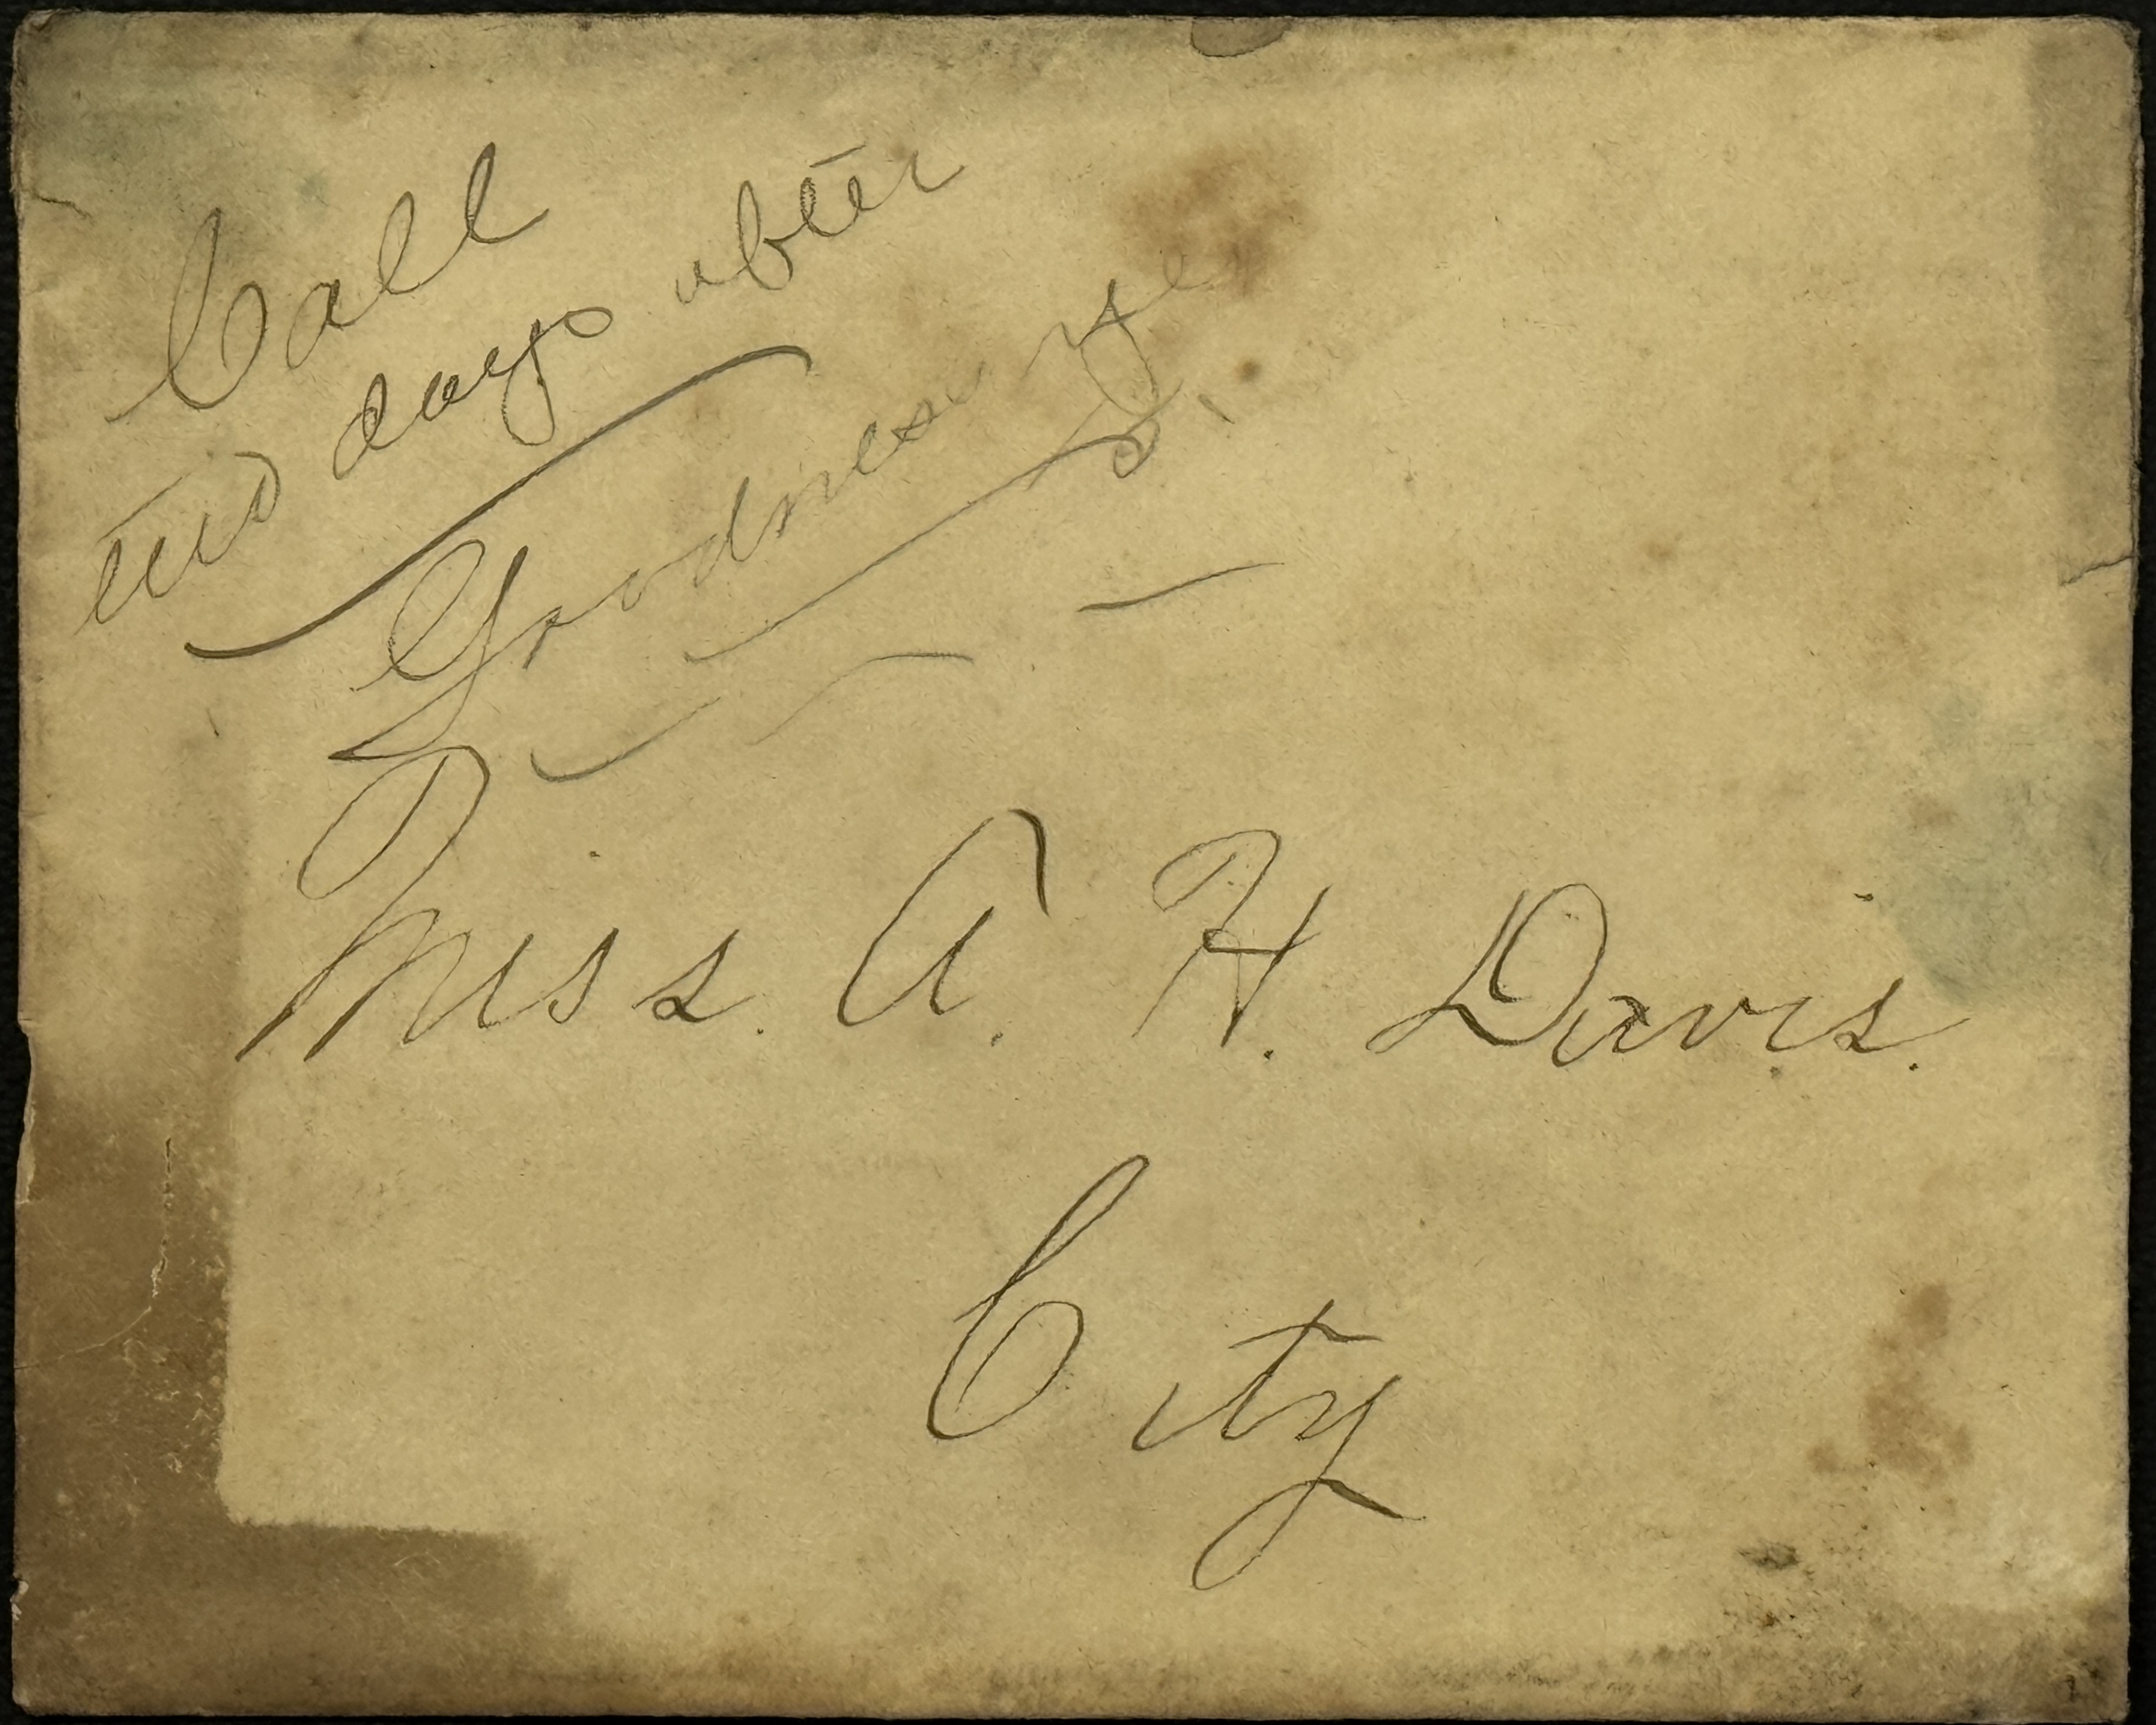 Call
two days after
Goodness
Miss. A. H. Davis.
City